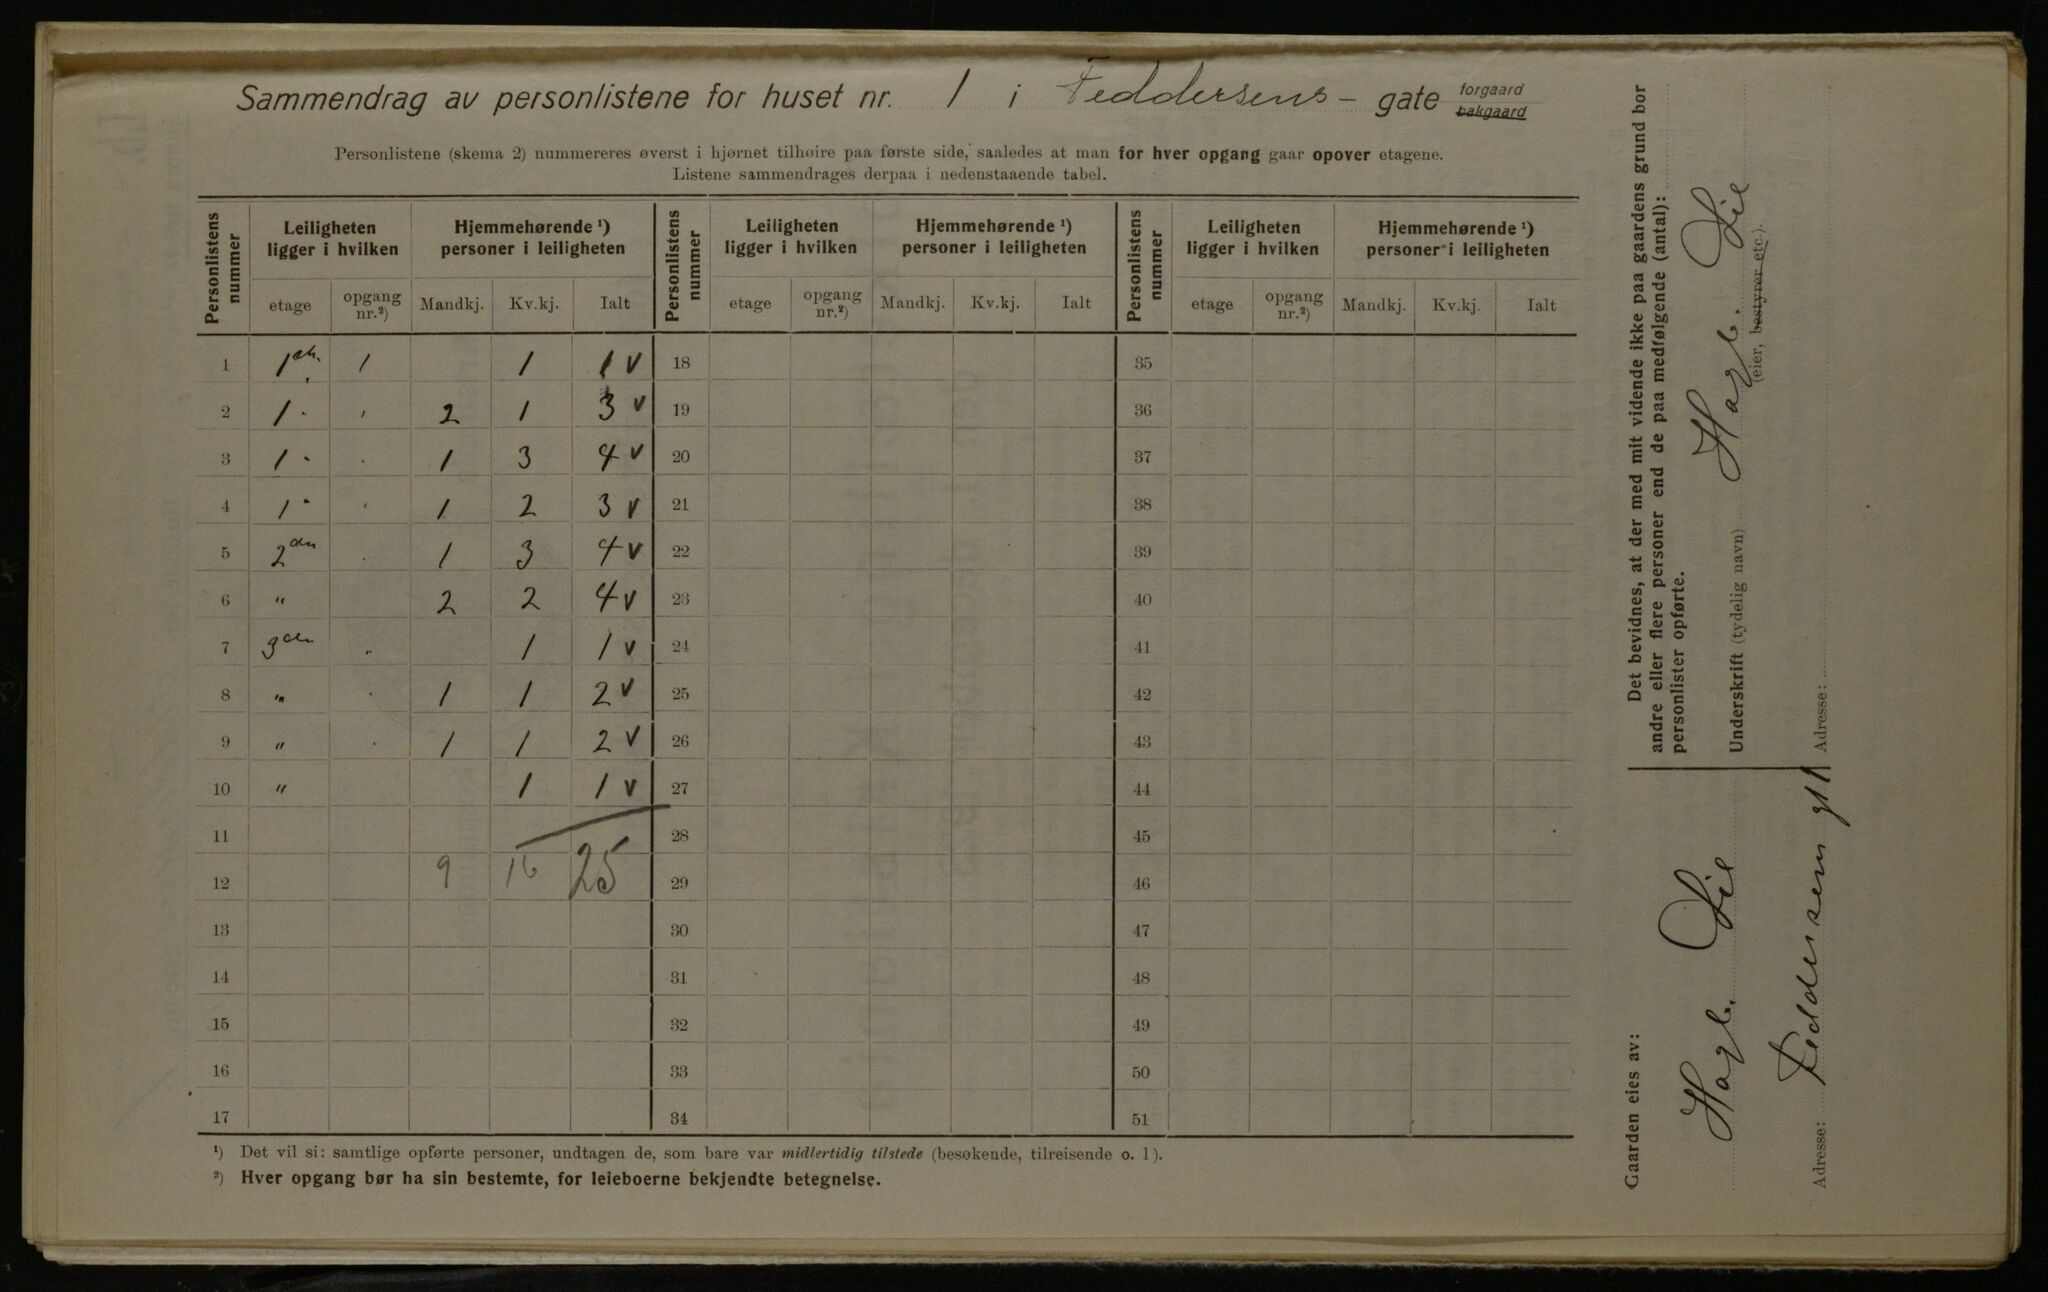 Sammendrag av personlistene for huset nr. 1 i Feddersens- gate forgaard
bakgaard
Personlistene (skema 2) nummereres øverst i hjørnet tilhøire paa første side, saaledes at man for hver opgang gaar opover etagene.
Listene sammendrages derpaa i nedenstaaende tabel.
Personlistens nummer | Leiligheten ligger i hvilken | Hjemmehørende ¹) personer i leiligheten | Personlistens nummer | Leiligheten ligger i hvilken | Hjemmehørende ¹) personer i leiligheten | Personlistens nummer | Leiligheten ligger i hvilken | Hjemmehørende ¹) personer i leiligheten
etage | opgang nr.²) | Mandkj. | Kv.kj. | Ialt | etage | opgang nr.²) | Mandkj. | Kv.kj. | Ialt | etage | opgang nr.²) | Mandkj. | Kv.kj. | Ialt
1 1 1 1 1 v 18 35
2 1 " 2 1 3 v 19 36
3 1 " 1 3 4 v 20 37
4 1 " 1 2 3 v 21 38
5 2den " 1 3 4 v 22 39
6 " 2 2 4 v 23 40
7 3die " 1 1 v 24 41
8 " " 1 1 2 v 25 42
9 " " 1 1 2 v 26 43
10 " 1 1 v 27 44
11 28 45
12 9 16 25 29 46
13 30 47
14 31 48
15 32 49
16 33 50
17 34 51
¹) Det vil si: samtlige opførte personer, undtagen de, som bare var midlertidig tilstede (besøkende, tilreisende o. l).
²) Hver opgang bør ha sin bestemte, for leieboerne bekjendte betegnelse.
Gaarden eies av:
Hagb. Lie
Adresse: Feddersens gt 1
Det bevidnes, at der med mit vidende ikke paa gaardens grund bor
andre eller flere personer end de paa medfølgende (antal):
personlister opførte.
Underskrift (tydelig navn) Hagb. Lie
(eier, bestyrer etc.).
Adresse: